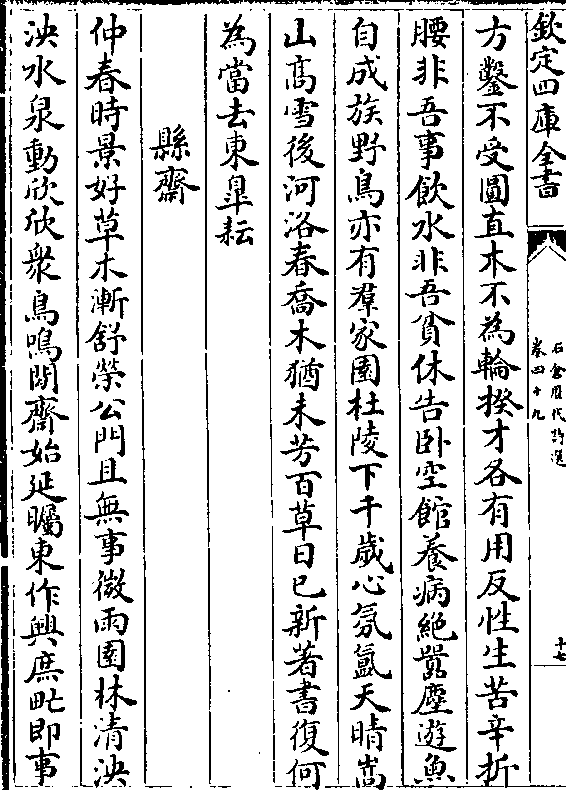 欽定四庫全書
石倉歷代詩選
卷四十九
十七
方鑿不受圓直木不為輪揆才各有用反性生苦辛折
腰非吾事飲水非吾貧休告卧空館養病絶囂塵遊魚
自成族野鳥亦有羣家園杜陵下千歲心氛氲天晴嵩
山髙雪後河洛春喬木猶未芳百草日已新著書復何
為當去東臯耘
縣齋
仲春時景好草木漸舒榮公門且無事微雨園林清泱
泱水泉動欣欣衆鳥鳴閒齋始延矚東作興庶甿即事